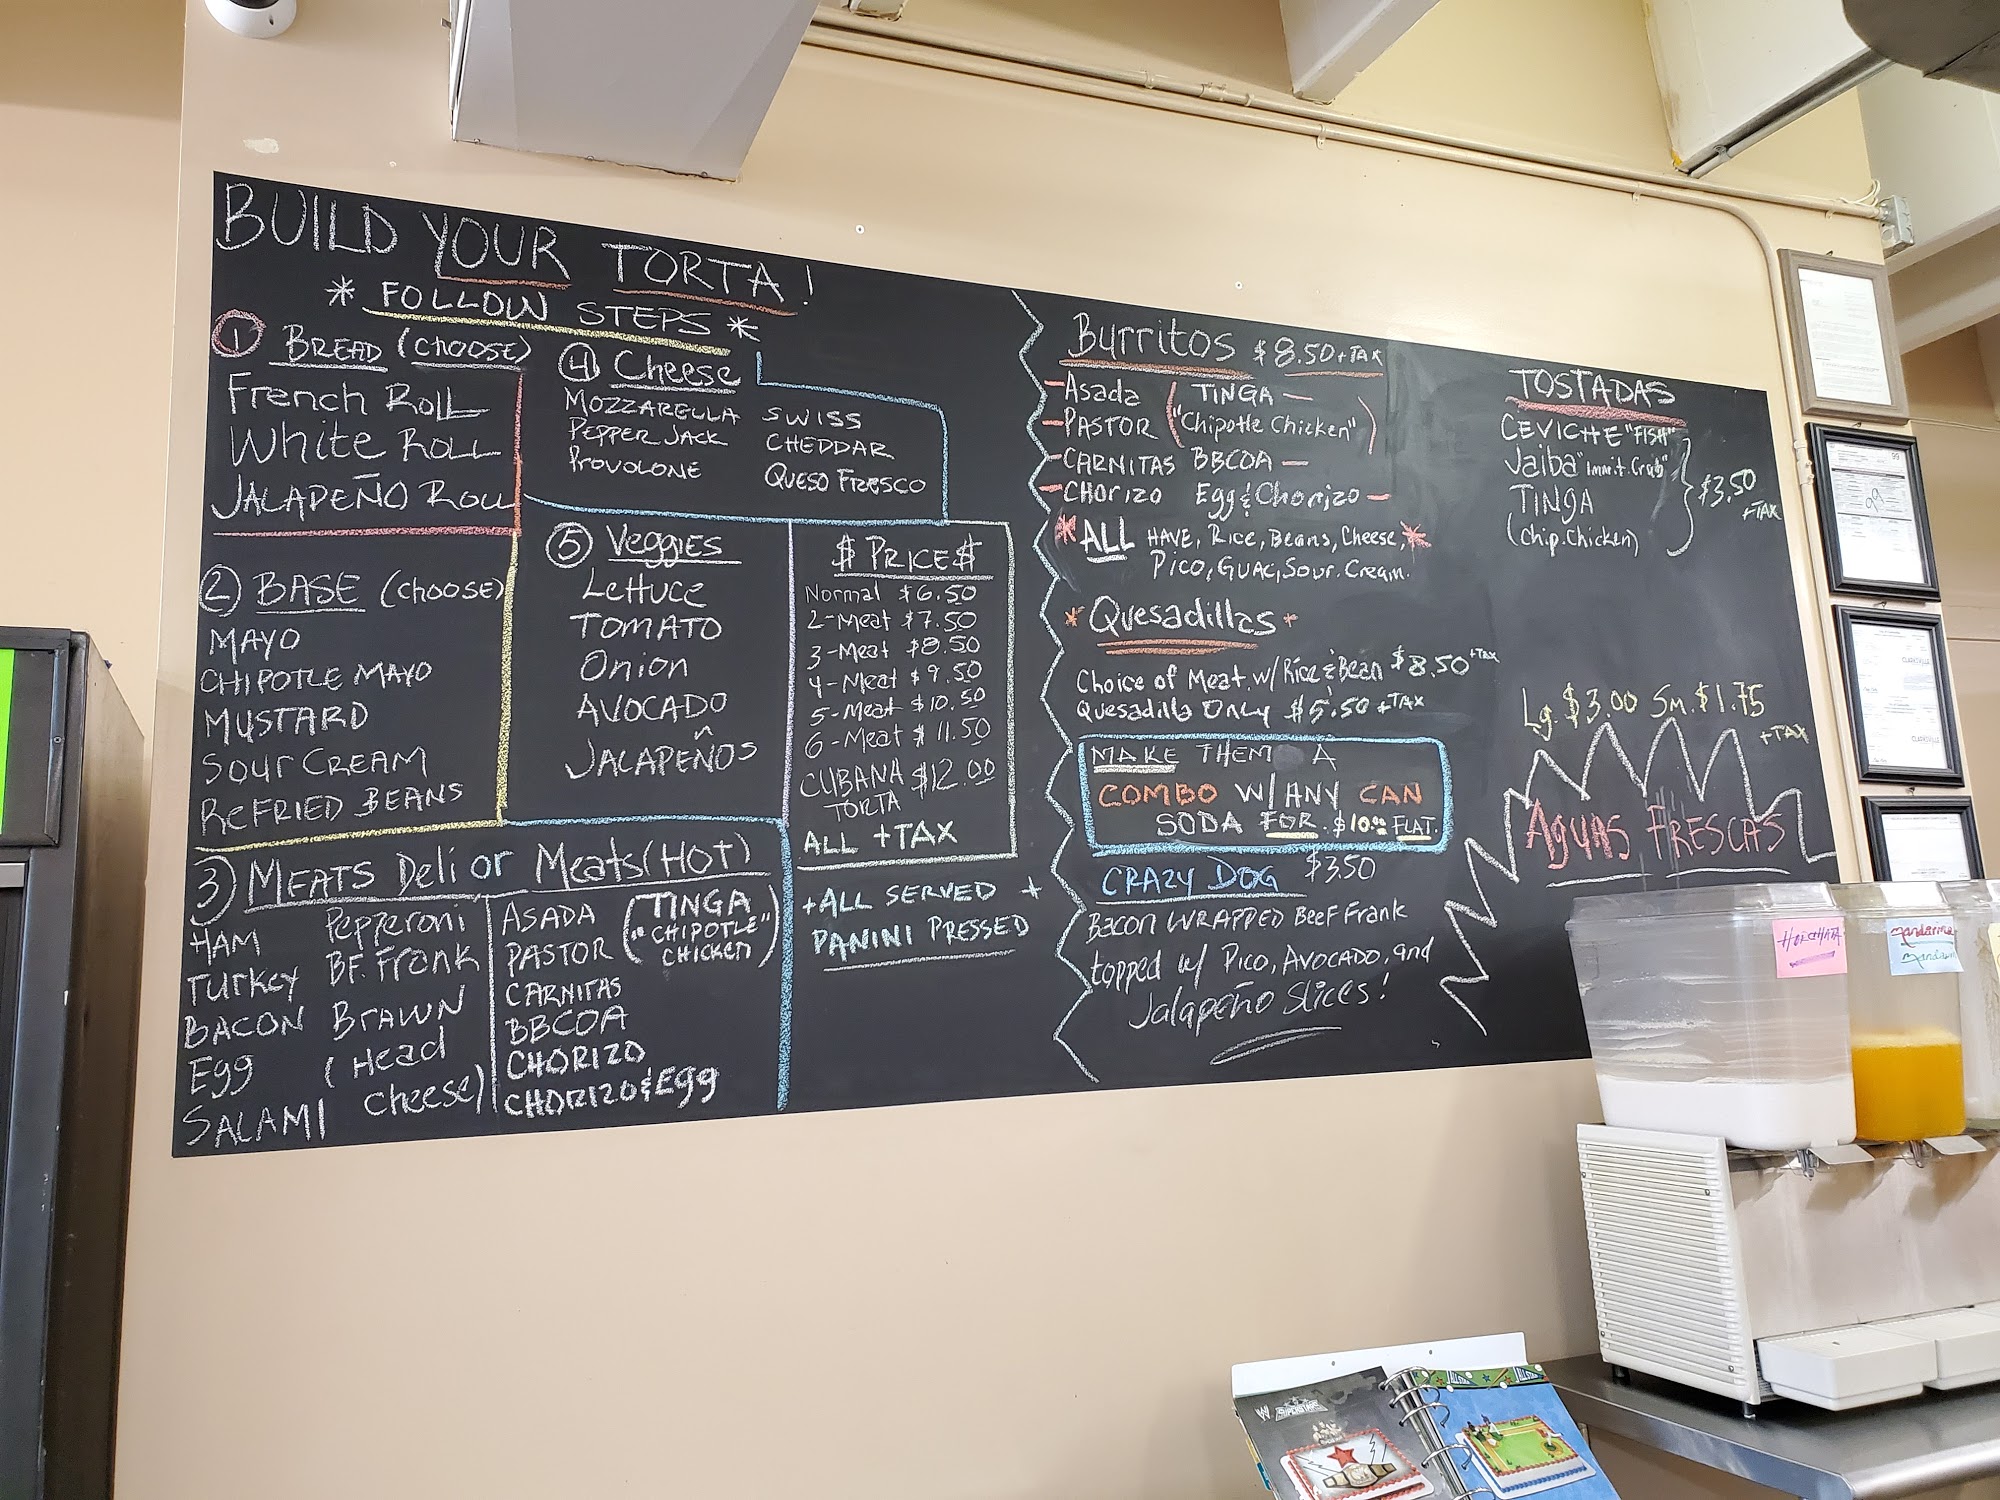 BUILD YOUR TORTA!
* FOLLOW STEPS *
1 BREAD (CHOOSE)
French Roll
White Roll
JALAPEÑO Roll
2 BASE (CHOOSE)
MAYO
CHIPOTLE MAYO
MUSTARD
SOUR CREAM
ReFRIED BEANS
3) MEATS Deli or Meats (HOT)
HAM
TURKEY
BACON
Egg
SALAMI
Pepperoni
BF. Frank
BRAWN
(Head
cheese)
ASADA
PASTOR
CARNITAS
BBCOA
CHORIZO
CHORIZO & Egg
(TINGA
"CHIPOTLE"
CHICKEN)
4 Cheese
MOZZARELLA
PEPPER JACK
PROVOLONE
SWISS
CHEDDAR
QUESO FRESCO
5 Veggies
Lettuce
TOMATO
Onion
AVOCADO
JALAPEÑOS
$ PRICE $
Normal $6.50
2-Meat $7.50
3-Meat $8.50
4-Meat $9.50
5-Meat $10.50
6-Meat $11.50
CUBANA $12.00
TORTA
ALL +TAX
+ALL SERVED +
PANINI PRESSED
Burritos $8.50+TAX
– Asada
– PASTOR
– CARNITAS
– CHORIZO
TINGA –
("Chipotle Chicken")
BBCOA –
Egg & Chorizo –
* ALL HAVE, Rice, Beans, Cheese, *
Pico, GUAC, Sour. Cream.
* Quesadillas *
Choice of Meat. w/ Rice & Bean $8.50 +TAX
Quesadilla Only $5.50 +TAX
MAKE THEM A
COMBO W/ ANY CAN
SODA FOR $10.00 FLAT.
CRAZY DOG $3.50
Bacon WRAPPED Beef Frank
topped w/ Pico, AVOCADO, and
Jalapeño Slices!
TOSTADAS
CEVICHE "FISH"
Jaiba "Immit. Crab"
TINGA
(Chip. Chicken)
$3.50
+TAX
Lg. $3.00 Sm. $1.75
+TAX
Aguas Frescas
HORCHATA
mandarina
mandarin